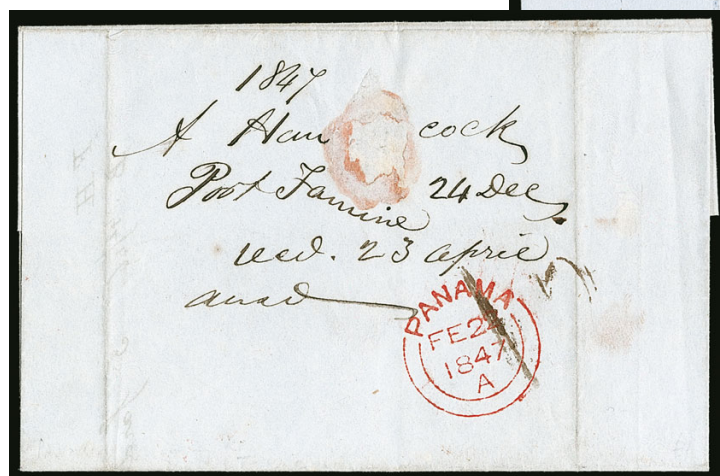 1847
A Hancock
Port Famine 24 Dec
recd. 23 april
ansd
PANAMA
FE 24
1847
A